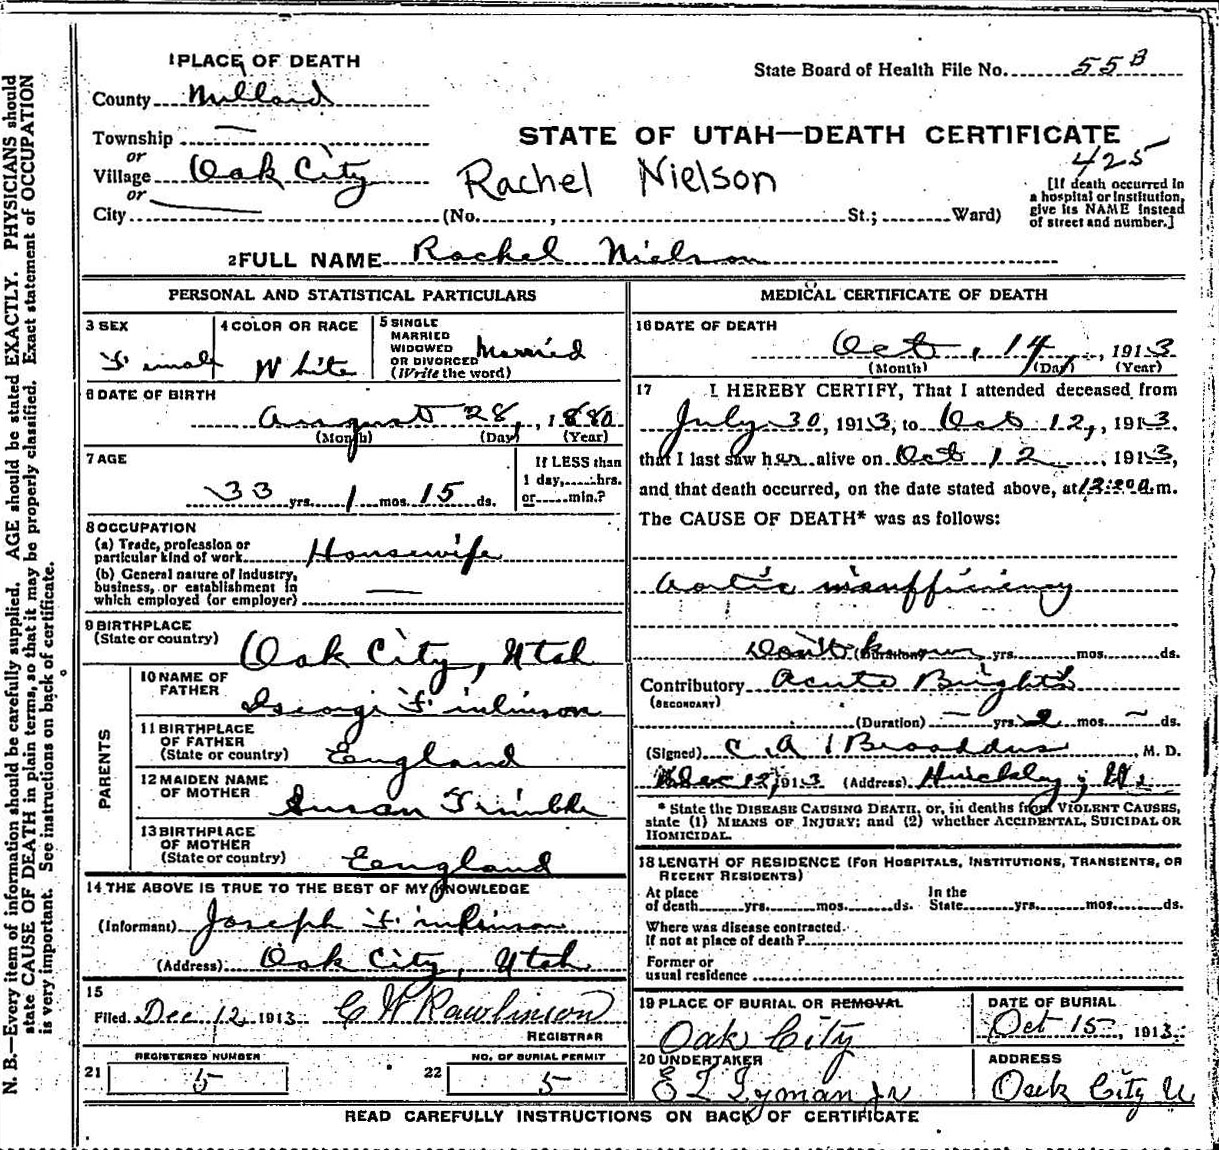 1 PLACE OF DEATH
County Millard
State Board of Health File No. 55B
Township —
STATE OF UTAH—DEATH CERTIFICATE
425
or
Village Oak City
Rachel Nielson
or
City (No. , St.; Ward)
[If death occurred in
a hospital or institution,
give its NAME instead
of street and number.]
2 FULL NAME Rachel Nielson
PERSONAL AND STATISTICAL PARTICULARS
3 SEX
Female
4 COLOR OR RACE
White
5 SINGLE
MARRIED
WIDOWED
OR DIVORCED
(Write the word)
Married
6 DATE OF BIRTH
August 28, 1880
(Month) (Day) (Year)
7 AGE
33 yrs. 1 mos. 15 ds.
If LESS than
1 day,......hrs.
or......min.?
8 OCCUPATION
(a) Trade, profession or
particular kind of work Housewife
(b) General nature of industry,
business, or establishment in
which employed (or employer) —
9 BIRTHPLACE
(State or country) Oak City, Utah
PARENTS
10 NAME OF
FATHER
George Finlinson
11 BIRTHPLACE
OF FATHER
(State or country) England
12 MAIDEN NAME
OF MOTHER
Susan Trimble
13 BIRTHPLACE
OF MOTHER
(State or country) Eengland
14 THE ABOVE IS TRUE TO THE BEST OF MY KNOWLEDGE
(Informant) Joseph Finlinson
(Address) Oak City, Utah
15
Filed Dec 12, 1913 C W Rawlinson
REGISTRAR
REGISTERED NUMBER
21 5
NO. OF BURIAL PERMIT
22 5
MEDICAL CERTIFICATE OF DEATH
16 DATE OF DEATH
Oct, 14, 1913
(Month) (Day) (Year)
17 I HEREBY CERTIFY, That I attended deceased from
July 30, 1913, to Oct 12, 1913.
that I last saw her alive on Oct 12, 1913,
and that death occurred, on the date stated above, at 12:20 a.m.
The CAUSE OF DEATH* was as follows:
Aortic insufficiency
Don't know (Duration) yrs. mos. ds.
Contributory Acute Bright's
(SECONDARY)
(Duration) — yrs. 2 mos. — ds.
(Signed) C. A. Broaddus, M. D.
Dec 12, 1913 (Address) Hinckley, Ut
* State the DISEASE CAUSING DEATH, or, in deaths from VIOLENT CAUSES,
state (1) MEANS OF INJURY; and (2) whether ACCIDENTAL, SUICIDAL OR
HOMICIDAL.
18 LENGTH OF RESIDENCE (FOR HOSPITALS, INSTITUTIONS, TRANSIENTS, OR
RECENT RESIDENTS)
At place
of death......yrs......mos......ds.
In the
State......yrs......mos......ds.
Where was disease contracted.
If not at place of death?
Former or
usual residence
19 PLACE OF BURIAL OR REMOVAL
Oak City
DATE OF BURIAL
Oct 15, 1913
20 UNDERTAKER
E L Lyman Jr
ADDRESS
Oak City U
READ CAREFULLY INSTRUCTIONS ON BACK OF CERTIFICATE
N. B.—Every item of information should be carefully supplied. AGE should be stated EXACTLY. PHYSICIANS should
state CAUSE OF DEATH in plain terms, so that it may be properly classified. Exact statement of OCCUPATION
is very important. See instructions on back of certificate.